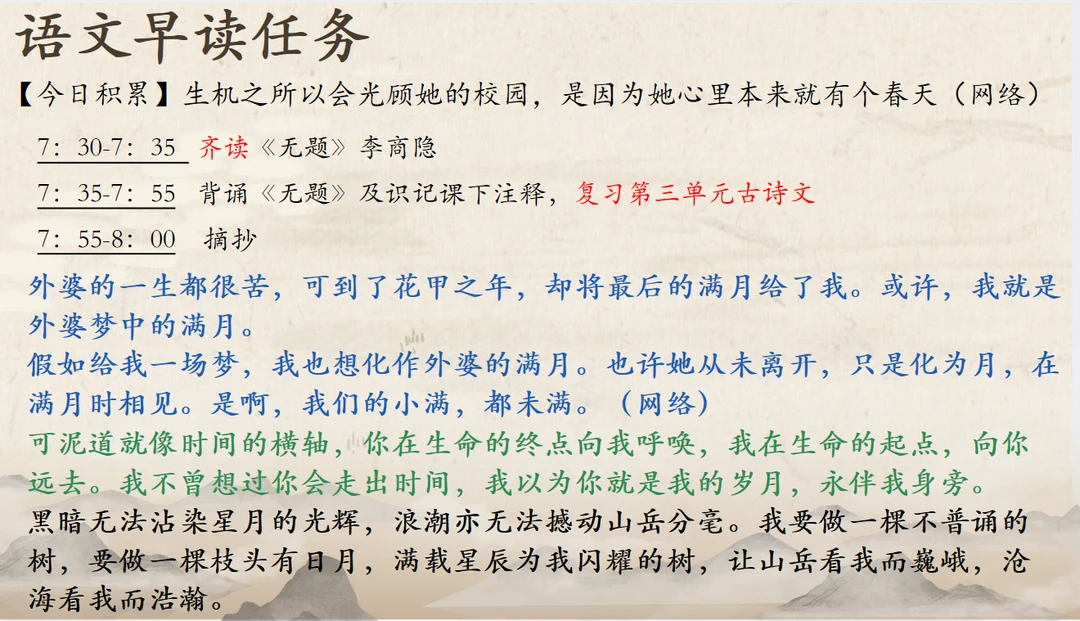 语文早读任务
【今日积累】生机之所以会光顾她的校园，是因为她心里本来就有个春天（网络）
7：30-7：35 齐读《无题》李商隐
7：35-7：55 背诵《无题》及识记课下注释，复习第三单元古诗文
7：55-8：00 摘抄
外婆的一生都很苦，可到了花甲之年，却将最后的满月给了我。或许，我就是
外婆梦中的满月。
假如给我一场梦，我也想化作外婆的满月。也许她从未离开，只是化为月，在
满月时相见。是啊，我们的小满，都未满。（网络）
可泥道就像时间的横轴，你在生命的终点向我呼唤，我在生命的起点，向你
远去。我不曾想过你会走出时间，我以为你就是我的岁月，永伴我身旁。
黑暗无法沾染星月的光辉，浪潮亦无法撼动山岳分毫。我要做一棵不普诵的
树，要做一棵枝头有日月，满载星辰为我闪耀的树，让山岳看我而巍峨，沧
海看我而浩瀚。